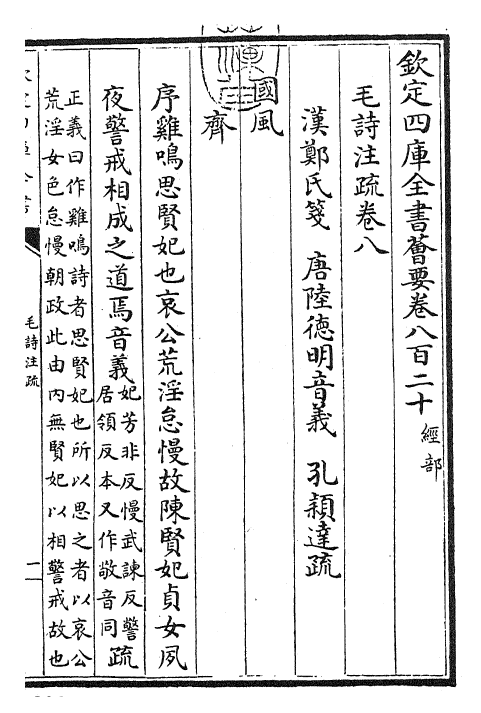 欽定四庫全書薈要卷八百二十 經部
毛詩注疏卷八
漢鄭氏箋 唐陸德明音義 孔穎達疏
國風
齊
序雞鳴思賢妃也哀公荒淫怠慢故陳賢妃貞女夙
夜警戒相成之道焉音義妃芳非反慢武諫反警
居領反本又作敬音同疏
正義曰作雞鳴詩者思賢妃也所以思之者以哀公
荒淫女色怠慢朝政此由内無賢妃以相警戒故也
毛詩注疏
一